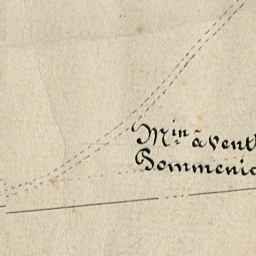 Min à Vent
Hommenic